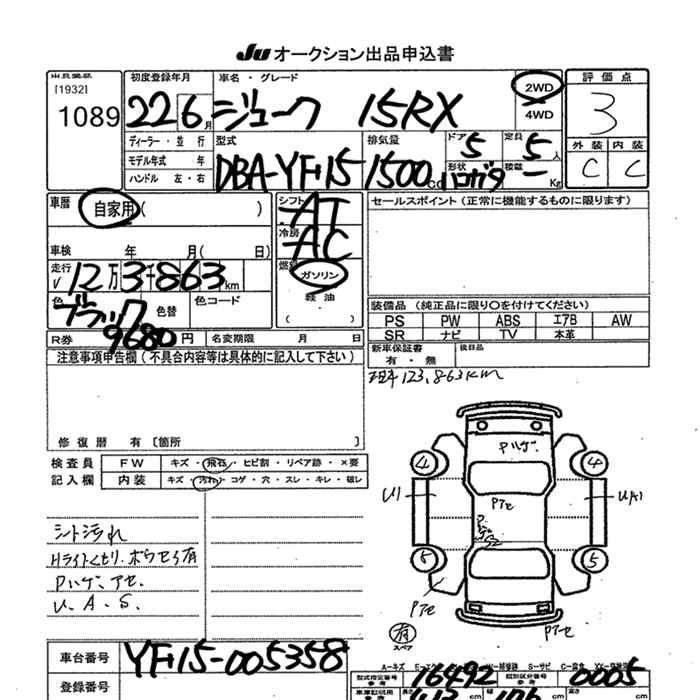 Ju オークション出品申込書
[1932]
1089
初度登録年月
22 6月
車名・グレード
ジューク 15RX
2WD
4WD
評価点
3
外装 内装
C C
ディーラー・並行
モデル年式 年
ハンドル 左・右
型式
DBA-YF15
排気量
1500cc
ドア
5
形状
ハロガタ
定員
5人
積載
ー Kg
車暦
自家用( )
車検 年 月( 日)
走行
√12万3千863km
色
ブラック
色替
色コード
シフト
AT
冷房
AC
燃料
ガソリン
軽油
( )
セールスポイント(正常に機能するものに限ります)
装備品(純正品に限り○を付けてください)
PS PW ABS エアB AW
SR ナビ TV 本革
R券
9680円
名変期限 月 日
新車保証書
有・無
後日品
現車123,863km
注意事項申告欄(不具合内容等は具体的に記入して下さい)
修復暦 有〔箇所
検査員
記入欄
FW キズ・飛石・ヒビ割・リペア跡・×要
内装 キズ・汚れ・コゲ・穴・スレ・キレ・破レ
シート汚れ
Hライトくもり、ボウセイ有
Pハゲ、アセ、
U、A、S、
Pハゲ
4
4
U1
UA1
Pアセ
5
5
Pアセ
Pアセ
有
スペア
車台番号
YF15-005358
登録番号
A-キズ
S-サビ
型式指定番号
参考
16492
類別区分番号
参考
0005
長さ
cm
幅
cm
cm